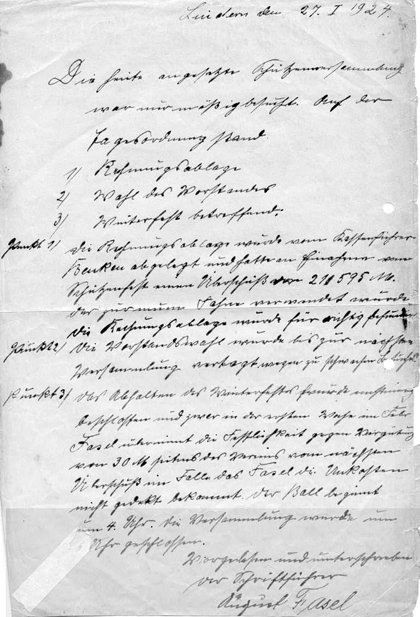 Lindern den 27. I 1924.
Die heute angesetzte Schützenversammlung
war nur mäßig besucht. Auf der
Tagesordnung stand
1) Rechnungsablage
2) Wahl des Vorstandes
3) Winterfest betreffend.
Punkt 1) Die Rechnungsablage wurde vom Kassenführer
abgelegt und hatte an Einahme vom
Schützenfest einen Überschuß von 210 595 M.
der zur neuen Fahne verwendet wurde
die Rechnungsablage wurde für richtig befunden
Punkt 2 Die Vorstandswahl wurde bis zur nächsten
Versammlung vertagt wegen zu schwachen Besuchs
Punkt 3) Das Abhalten des Winterfestes wurde
beschlossen und zwar in der ersten Woche im Febr.
Fasel übernimmt die Festlichkeit gegen Vergütung
von 30 M seitens des Vereins vom nächsten
Überschuß im Falle das Fasel die Unkosten
nicht gedekt bekommt. Der Ball beginnt
um 4 Uhr. Die Versammlung wurde um
Uhr geschlossen.
Vorgelesen und unterschrieben
Der Schriftführer
August Fasel